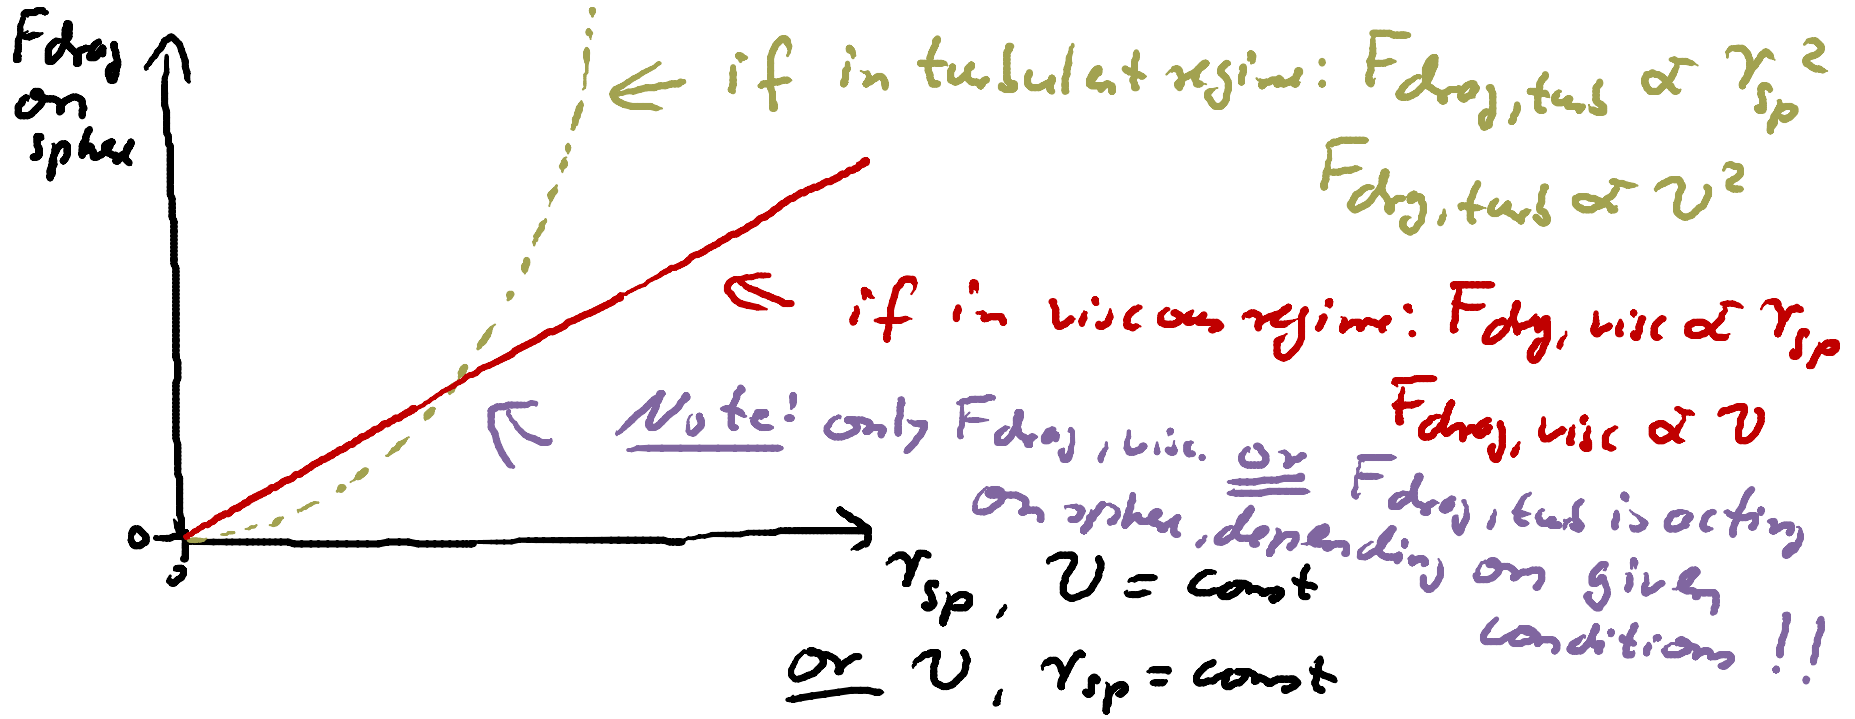 Fdrag
on
sphere
if in turbulent regime: Fdrag, turb ∝ rsp²
Fdrg, turb ∝ v²
if in viscous regime: Fdrg, visc ∝ rsp
Fdrag, visc ∝ v
Note! only Fdrag, visc. or Fdrag, turb is acting
on sphere, depending on given
conditions!!
0
0
rsp, v = const
or v, rsp = const